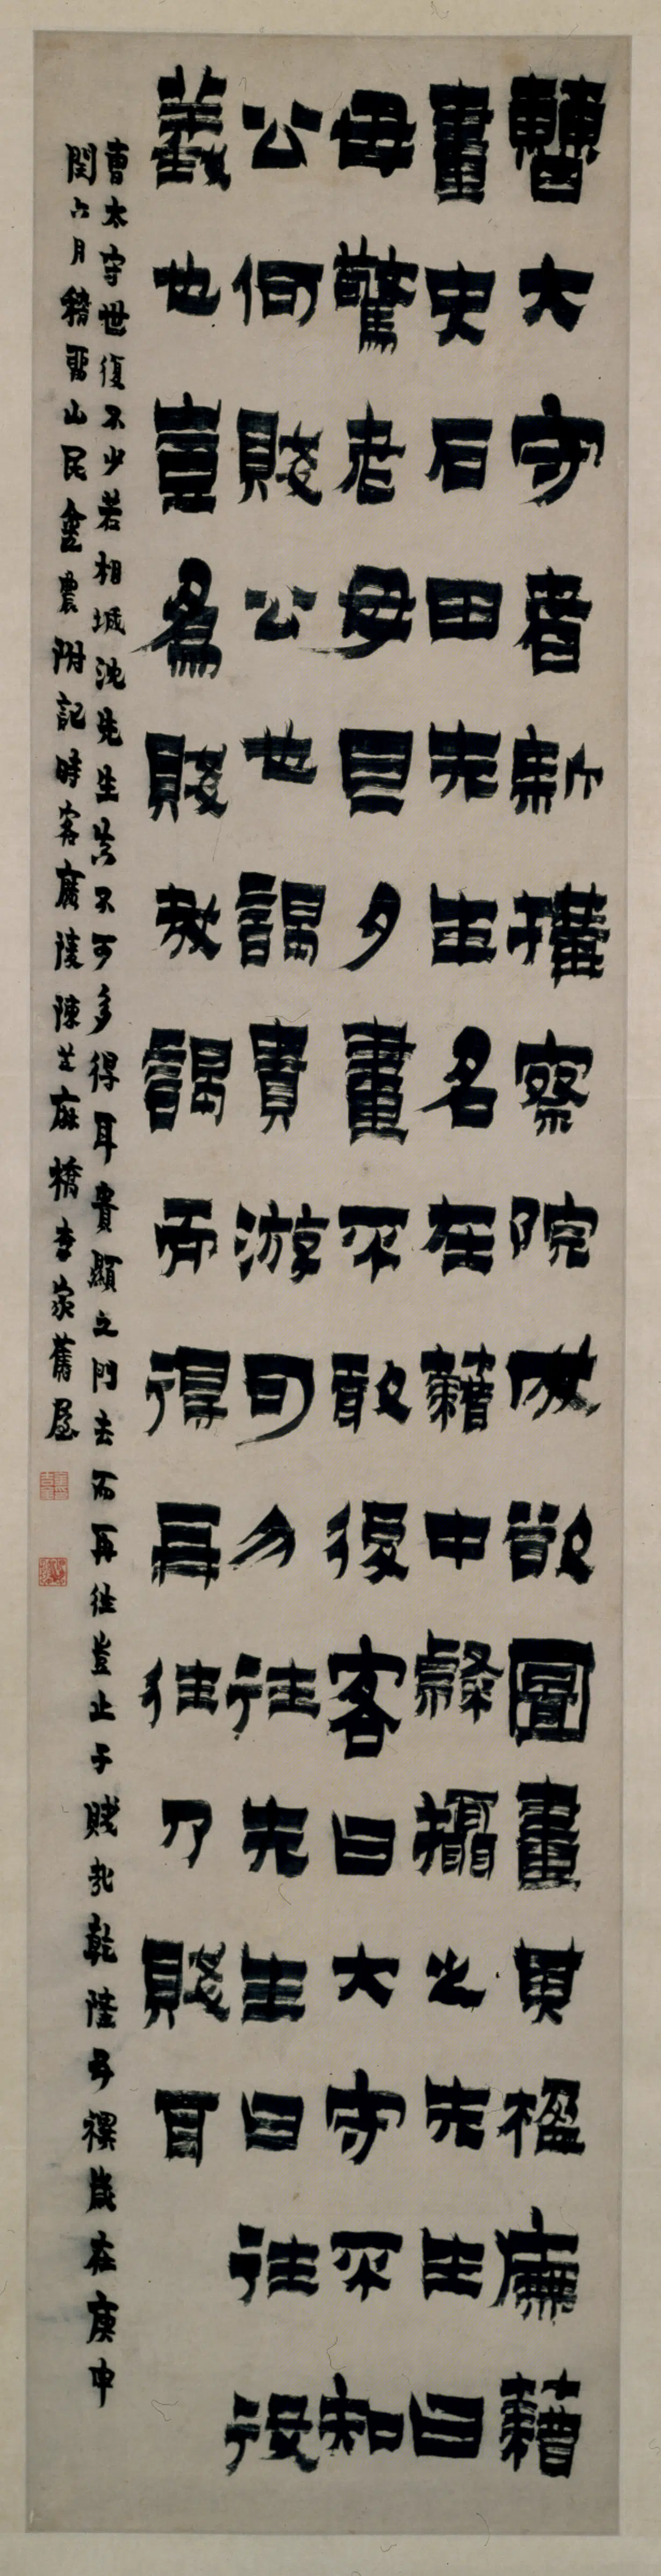 曹大守者新搆察院成欲圖畫其楹廡藉
畫史石田先生名在藉中隸攝之先生曰
毋驚老母旦夕畫不敢後客曰大守不知
公何賤公也謁貴游可勿往先生曰往役
義也豈為賤哉謁而得再往乃賤耳
曹太守世復不少若相城沈先生真不可多得耳貴顯之門去而再往豈止于賤哉乾隆五禩歲在庚申
閏六月稽留山民金農附記時客廣陵陳芝麻橋李家舊屋